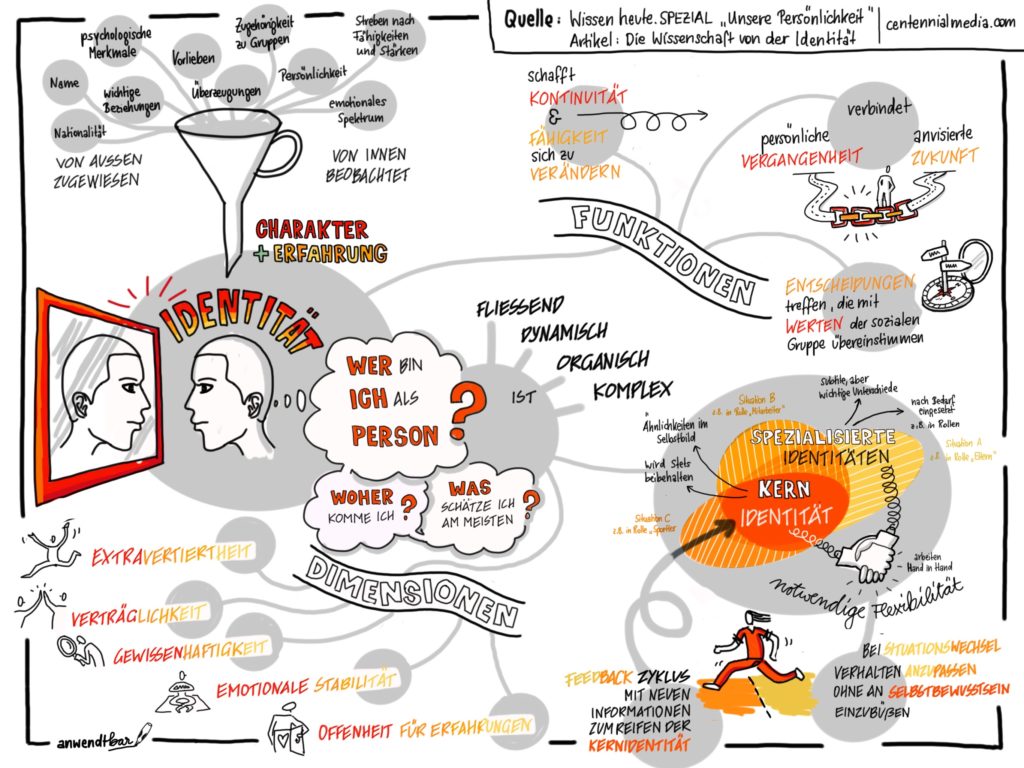 Quelle: Wissen heute. SPEZIAL „Unsere Persönlichkeit"
Artikel: Die Wissenschaft von der Identität
centennialmedia.com
psychologische
Merkmale
Zugehörigkeit
zu Gruppen
Streben nach
Fähigkeiten
und Stärken
Vorlieben
Name
wichtige
Beziehungen
Überzeugungen
Persönlichkeit
emotionales
Spektrum
Nationalität
VON AUSSEN
ZUGEWIESEN
VON INNEN
BEOBACHTET
CHARAKTER
+ ERFAHRUNG
IDENTITÄT
WER BIN
ICH ALS
PERSON ?
WOHER
KOMME ICH ?
WAS
SCHÄTZE ICH
AM MEISTEN ?
IST
FLIESSEND
DYNAMISCH
ORGANISCH
KOMPLEX
FUNKTIONEN
schafft
KONTINUITÄT
&
FÄHIGKEIT
sich zu
VERÄNDERN
verbindet
persönliche
VERGANGENHEIT
anvisierte
ZUKUNFT
ENTSCHEIDUNGEN
treffen, die mit
WERTEN der sozialen
Gruppe übereinstimmen
Situation B
z.B. in Rolle „Mitarbeiter"
subtile, aber
wichtige Unterschiede
nach Bedarf
eingesetzt
z.B. in Rollen
Ähnlichkeiten im
Selbstbild
wird stets
beibehalten
SPEZIALISIERTE
IDENTITÄTEN
Situation A
z.B. in Rolle „Eltern"
KERN
IDENTITÄT
Situation C
z.B. in Rolle „Sportler
arbeiten
Hand in Hand
notwendige Flexibilität
DIMENSIONEN
EXTRAVERTIERTHEIT
VERTRÄGLICHKEIT
GEWISSENHAFTIGKEIT
EMOTIONALE STABILITÄT
OFFENHEIT FÜR ERFAHRUNGEN
FEEDBACK ZYKLUS
MIT NEUEN
INFORMATIONEN
ZUM REIFEN DER
KERNIDENTITÄT
BEI SITUATIONSWECHSEL
VERHALTEN ANZUPASSEN
OHNE AN SELBSTBEWUSSTSEIN
EINZUBÜßEN
anwendtbar